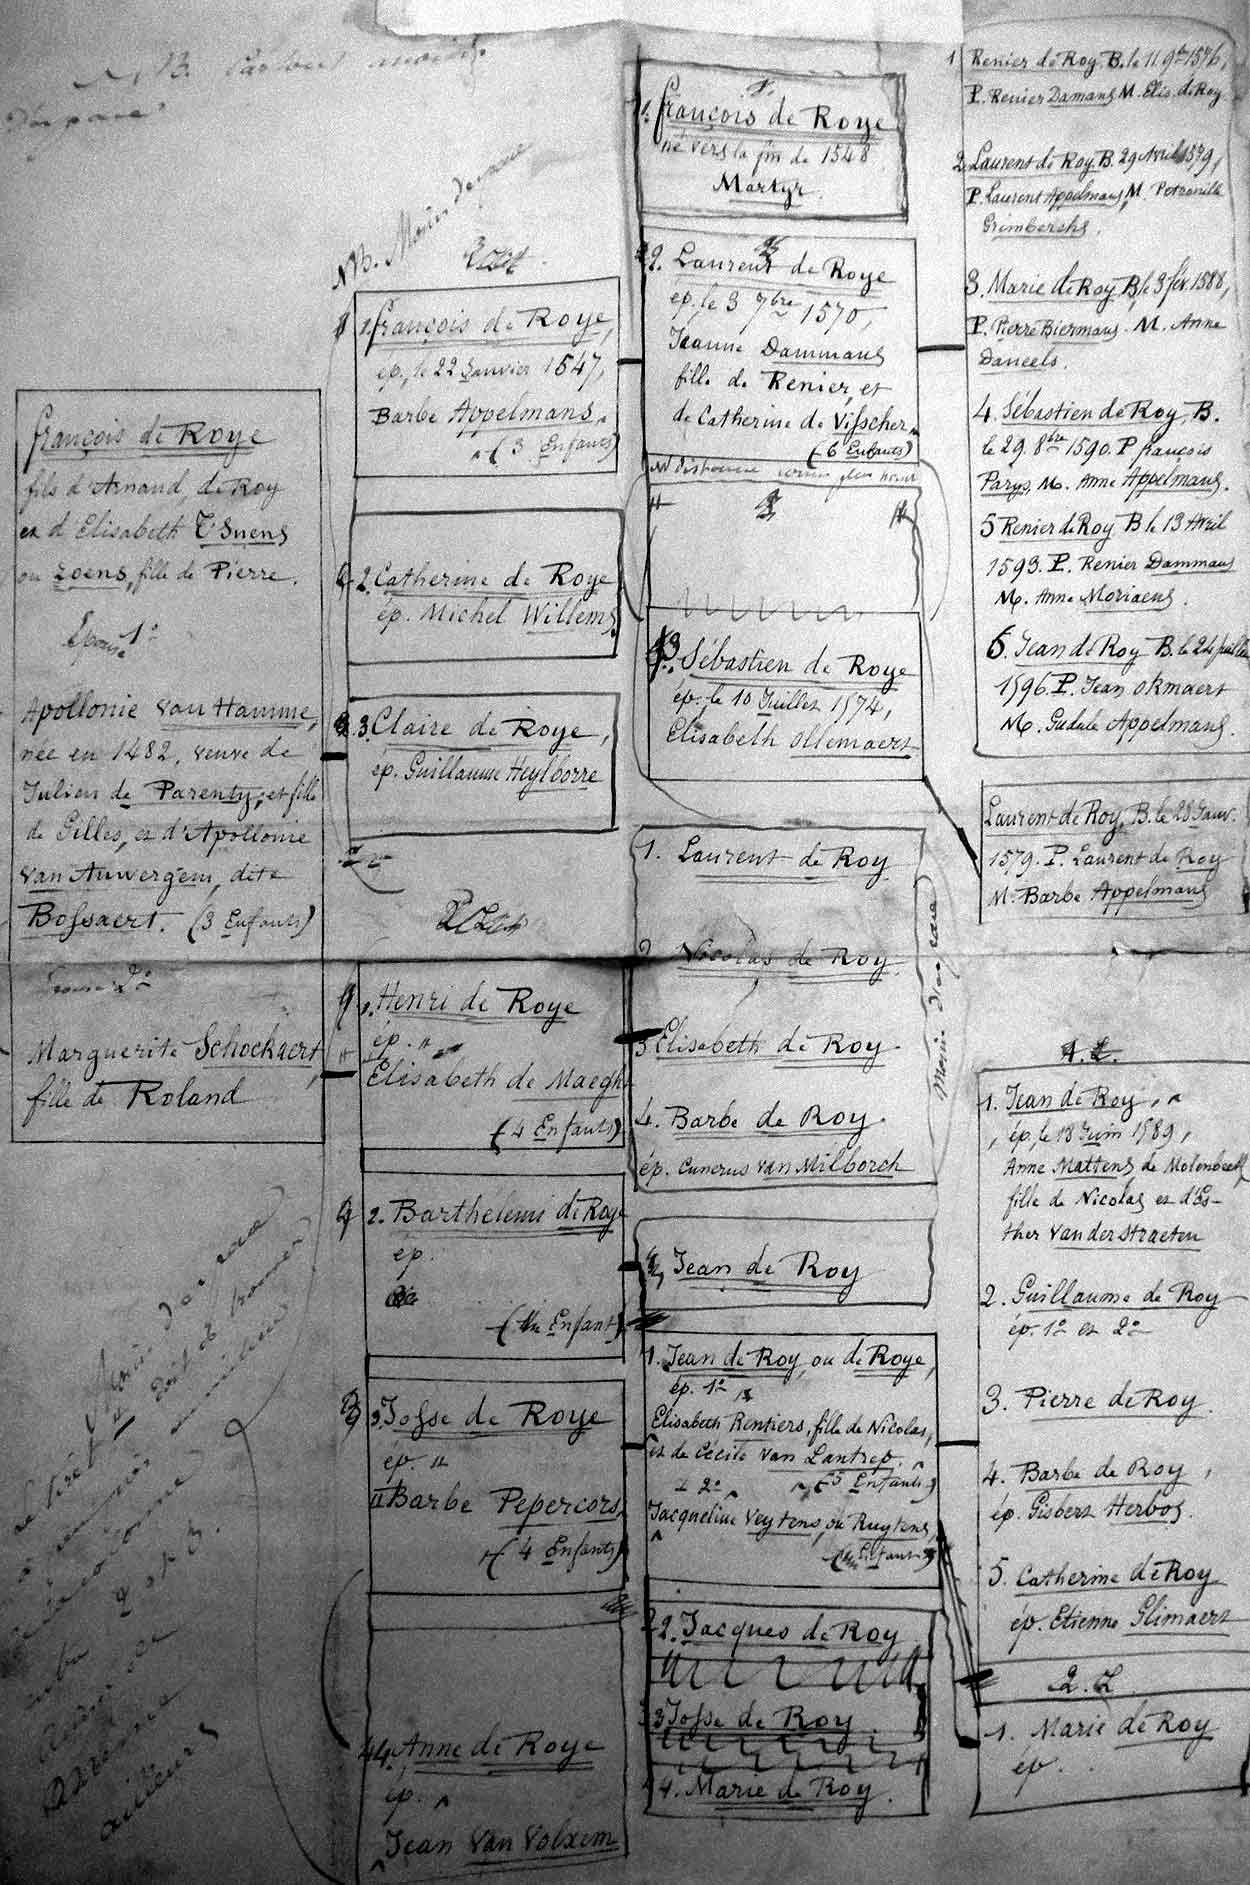 François de Roye
fils d'Arnaud, de Roy
et d'Elisabeth T'Suens
ou Zoens, fille de Pierre.
Epouse 1º
Apollonie Van Hamme,
née en 1482, veuve de
Julien de Parenty, et fille
de Gilles, et d'Apollonie
Van Auwergem, dite
Bossaert. (3 Enfants)
2º
Marguerite Schockaert,
fille de Roland
NB. Moins d'espace
1. François de Roye,
ép. le 22 Janvier 1547,
Barbe Appelmans,
(3 Enfants)
2. Catherine de Roye
ép. Michel Willems
3. Claire de Roye,
ép. Guillaume Heylborre
1. Henri de Roye
ép. "
Elisabeth de Maegh
(4 Enfants)
2. Barthélemi de Roye
ép.
(Un Enfant)
3. Josse de Roye
ép. "
Barbe Pepercors,
(4 Enfants)
4. Anne de Roye
ép.
Jean Van Volxem
1. François de Roye
né vers la fin de 1548
Martyr.
2. Laurent de Roye
ép. le 3 7bre 1570,
Jeanne Dammans
fille de Renier, et
de Catherine de Visscher
(6 Enfants)
3. Sébastien de Roye
ép. le 10 Juillet 1574,
Elisabeth Ollemaert
1. Laurent de Roy
2. Nicolas de Roy
3 Elisabeth de Roy.
4. Barbe de Roy.
ép. Cunerus Van Milborch
Moins d'espace
Jean de Roy
1. Jean de Roy, ou de Roye,
ép. 1º
Elisabeth Rentiers, fille de Nicolas,
et de Cécile Van Lantrep.
2º (5 Enfants)
Jacqueline Veytens, ou Ruytens,
(Un Enfant)
2. Jacques de Roy
3 Josse de Roy
4. Marie de Roy.
1 Renier de Roy. B. le 11. 9bre 1576,
P. Renier Damans M. Elis. de Roy
2. Laurent de Roy. B. 29 Avril 1579,
P. Laurent Appelmans, M. Petronille
Grimberghs.
3. Marie de Roy B. le 3 fév. 1588,
P. Pierre Biermans. M. Anne
Daneels.
4. Sébastien de Roy, B.
le 29 8bre 1590. P françois
Parys, M. Anne Appelmans.
5 Renier de Roy B le 13 Avril
1593. P. Renier Dammans
M. Anne Moriaens.
6. Jean de Roy B. le 24 juillet
1596. P. Jean Okmaert
M. Gudule Appelmans.
Laurent de Roy, B. le 28 Janv.
1579. P. Laurent de Roy
M. Barbe Appelmans
1. Jean de Roy,
ép. le 18 Juin 1589,
Anne Mattens de Molenbeek,
fille de Nicolas et d'Es-
ther Van der Straeten
2. Guillaume de Roy
ép. 1º et 2º
3. Pierre de Roy.
4. Barbe de Roy,
ép. Gisbert Herbos.
5. Catherine de Roy
ép. Etienne Glimaert
2. L
1. Marie de Roy
ép.